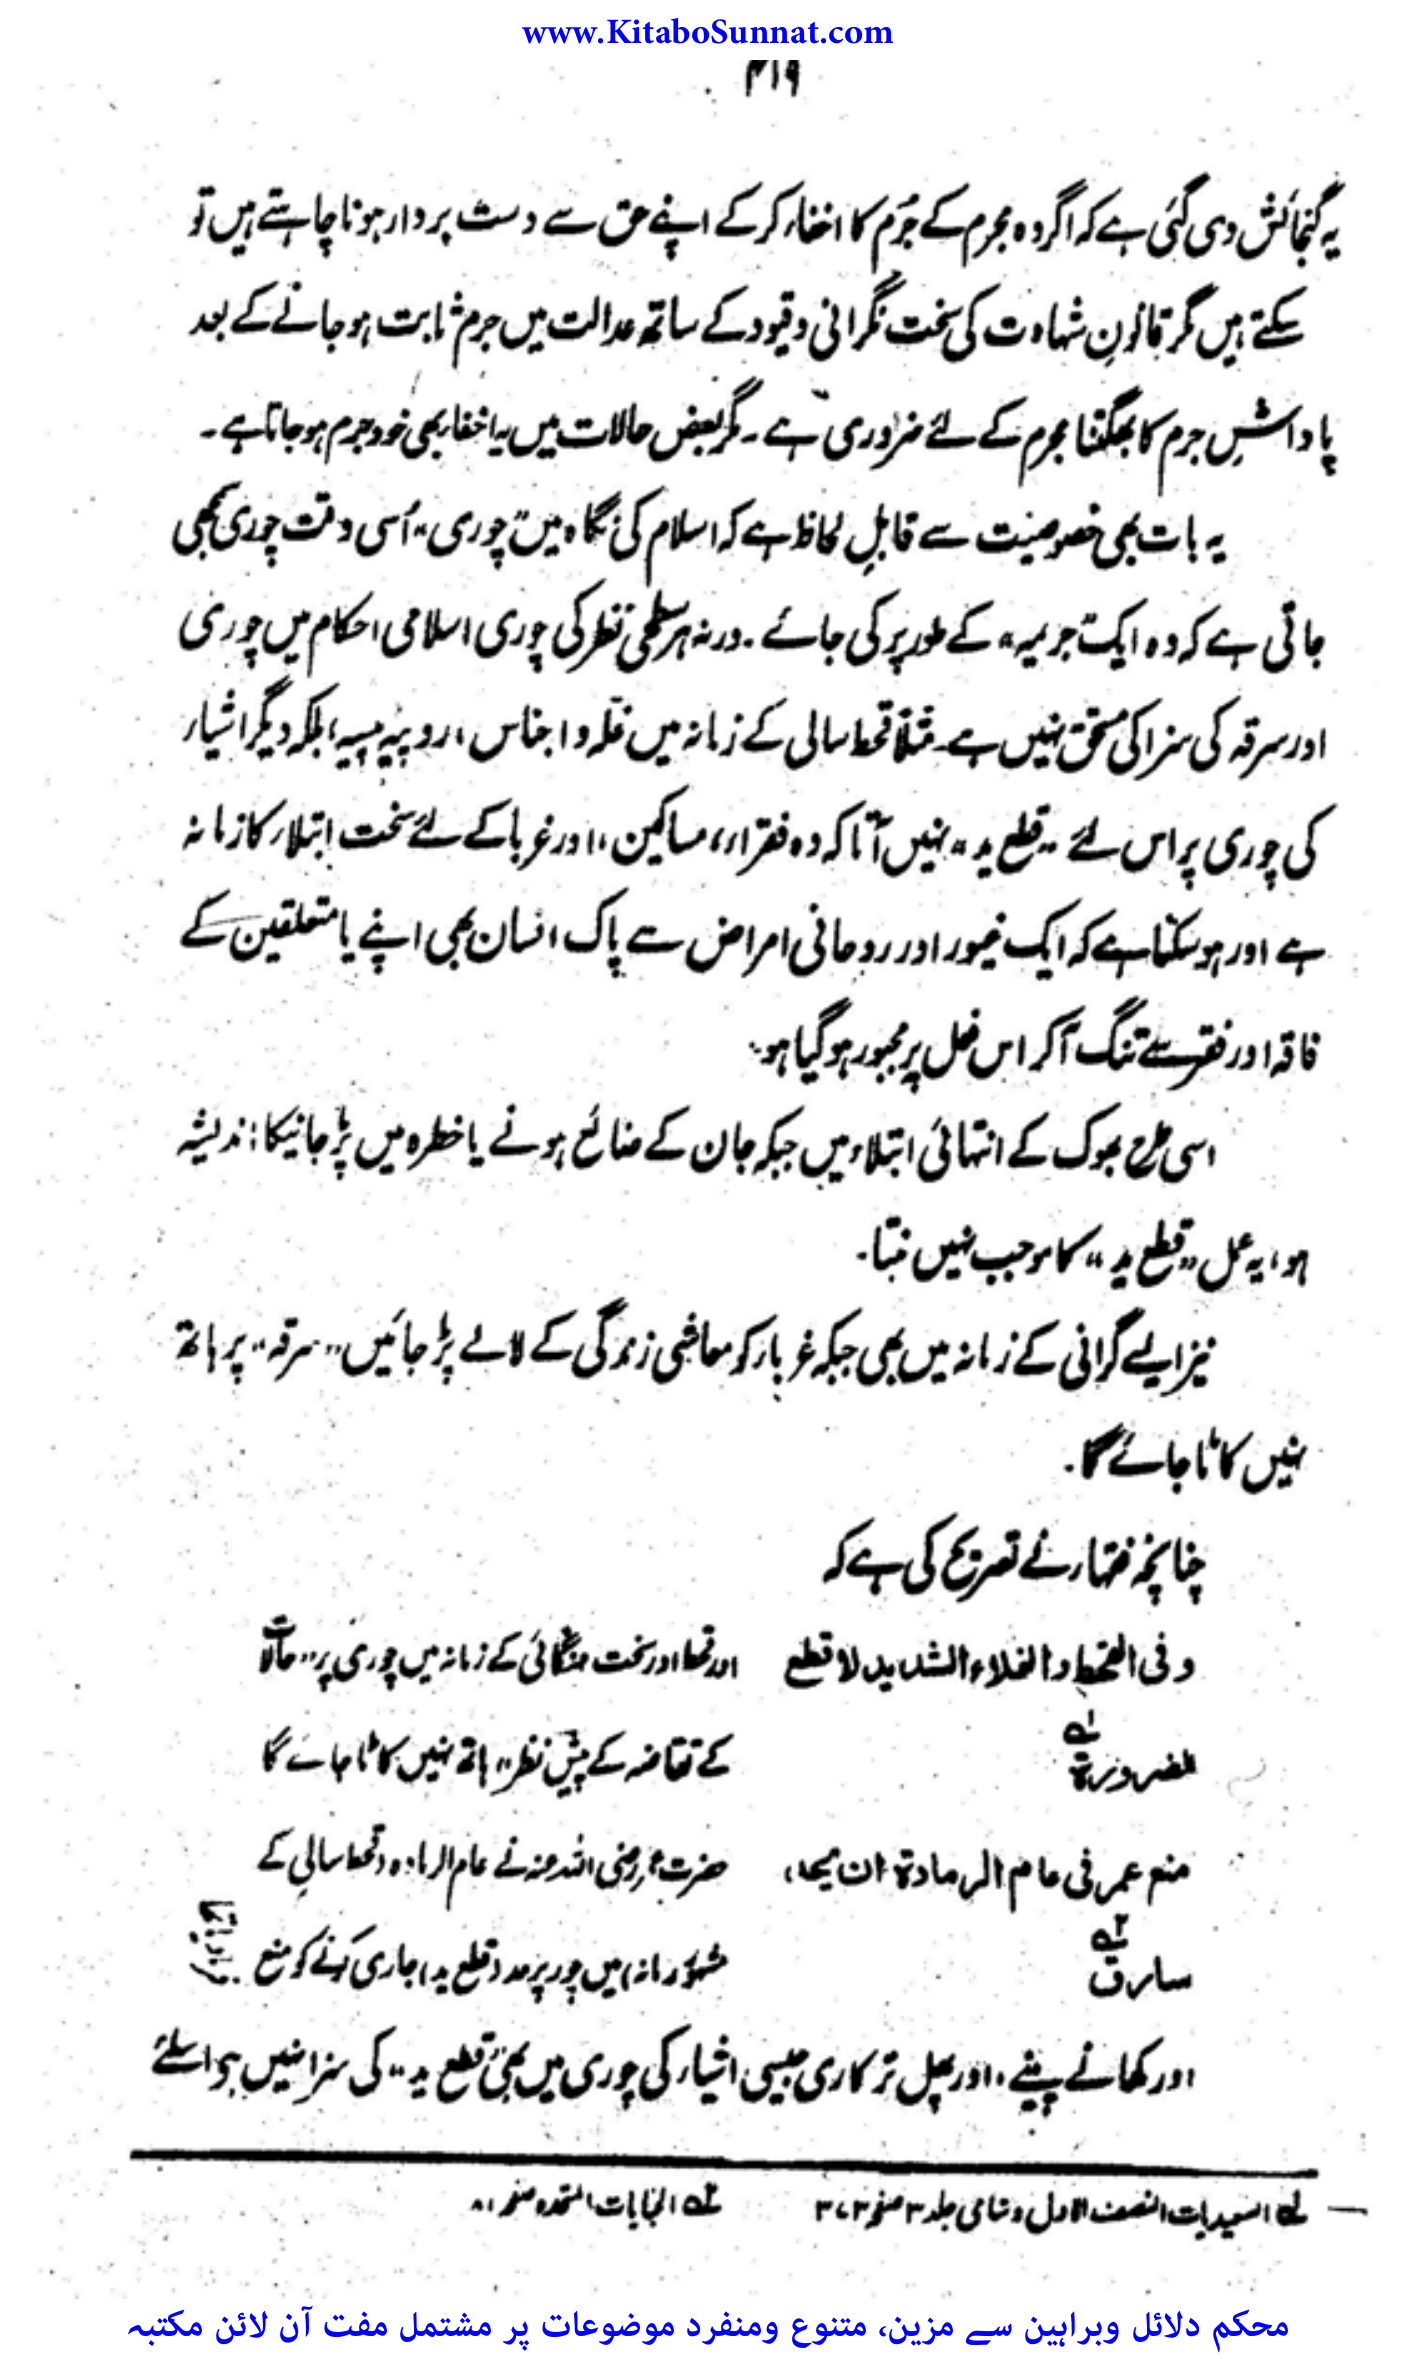 www.KitaboSunnat.com
۴۱۹
یہ گنجائش دی گئی ہے کہ اگر وہ مجرم کے جُرم کا اخفاء کر کے اپنے حق سے دست بردار ہونا چاہتے ہیں تو
سکتے ہیں مگر قانونِ شہادت کی سخت نگرانی و قیود کے ساتھ عدالت میں جرم ثابت ہو جانے کے بعد
پاداشِ جرم کا بھگتنا مجرم کے لئے ضروری ہے ۔ مگر بعض حالات میں یہ اخفا بھی خود جرم ہو جاتا ہے ۔
یہ بات بھی خصوصیت سے قابلِ لحاظ ہے کہ اسلام کی نگاہ میں "چوری" اُسی وقت چوری سمجھی
جاتی ہے کہ وہ ایک "جریمہ" کے طور پر کی جائے ۔ ورنہ ہر سطحی نظر کی چوری اسلامی احکام میں چوری
اور سرقہ کی سزا کی مستحق نہیں ہے ۔ مثلاً قحط سالی کے زمانہ میں غلہ و اجناس ، روپیہ پیسہ ، بلکہ دیگر اشیار
کی چوری پر اس لئے "قطع ید" نہیں آتا کہ وہ فقراء ، مساکین ، اور غربا کے لئے سخت ابتلار کا زمانہ
ہے اور ہو سکتا ہے کہ ایک غیور اور روحانی امراض سے پاک انسان بھی اپنے یا متعلقین کے
فاقہ اور فقر سے تنگ آ کر اس فعل پر مجبور ہو گیا ہو ۔
اسی طرح بھوک کے انتہائی ابتلاء میں جبکہ جان کے ضائع ہونے یا خطرہ میں پڑ جانیکا اندیشہ
ہو ، یہ عمل "قطع ید" کا موجب نہیں بنتا ۔
نیز ایسے گرانی کے زمانہ میں بھی جبکہ غربار کو معاشی زندگی کے لالے پڑ جائیں "سرقہ" پر ہاتھ
نہیں کاٹا جائے گا ۔
چنانچہ فقہار نے تصریح کی ہے کہ
و فی القحط والغلاء الشدید لا قطع
للضرورۃ ۱؎
اور قحط اور سخت مہنگائی کے زمانہ میں چوری پر "حالات
کے تقاضہ کے پیش نظر" ہاتھ نہیں کاٹا جائے گا
منع عمر فی عام الرمادۃ ان یحد
سارق ۲؎
حضرت عمر رضی اللہ عنہ نے عام الرمادہ (قحط سالی کے
مشہور زمانہ) میں چور پر حد (قطع ید) جاری کرنے کو منع
اور کھانے پینے ، اور پھل ترکاری جیسی اشیار کی چوری میں بھی "قطع ید" کی سزا نہیں ہے اسلئے
۱؎ السعیدیات النصف الاول و شامی جلد ۳ صفحہ ۲۷۳
۲؎ الجنایات المتحدہ صفحہ ۸۱
محکم دلائل وبراہین سے مزین، متنوع ومنفرد موضوعات پر مشتمل مفت آن لائن مکتبہ